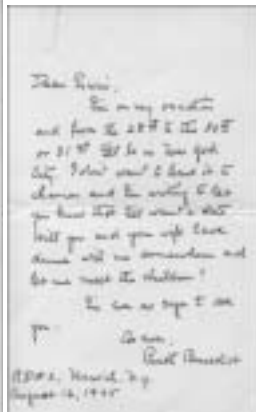 I'm on my vacation
and from the 28th to the 30th
or 31st I'll be in New York
City. I don't want to leave it to
chance and I'm writing to let
you know that I'll want a date
will you and your wife have
dinner with me somewhere and
let me meet the children?
I'm so eager to see
you.
As ever,
Ruth Benedict
Norwich, N.Y.
August 16, 1945